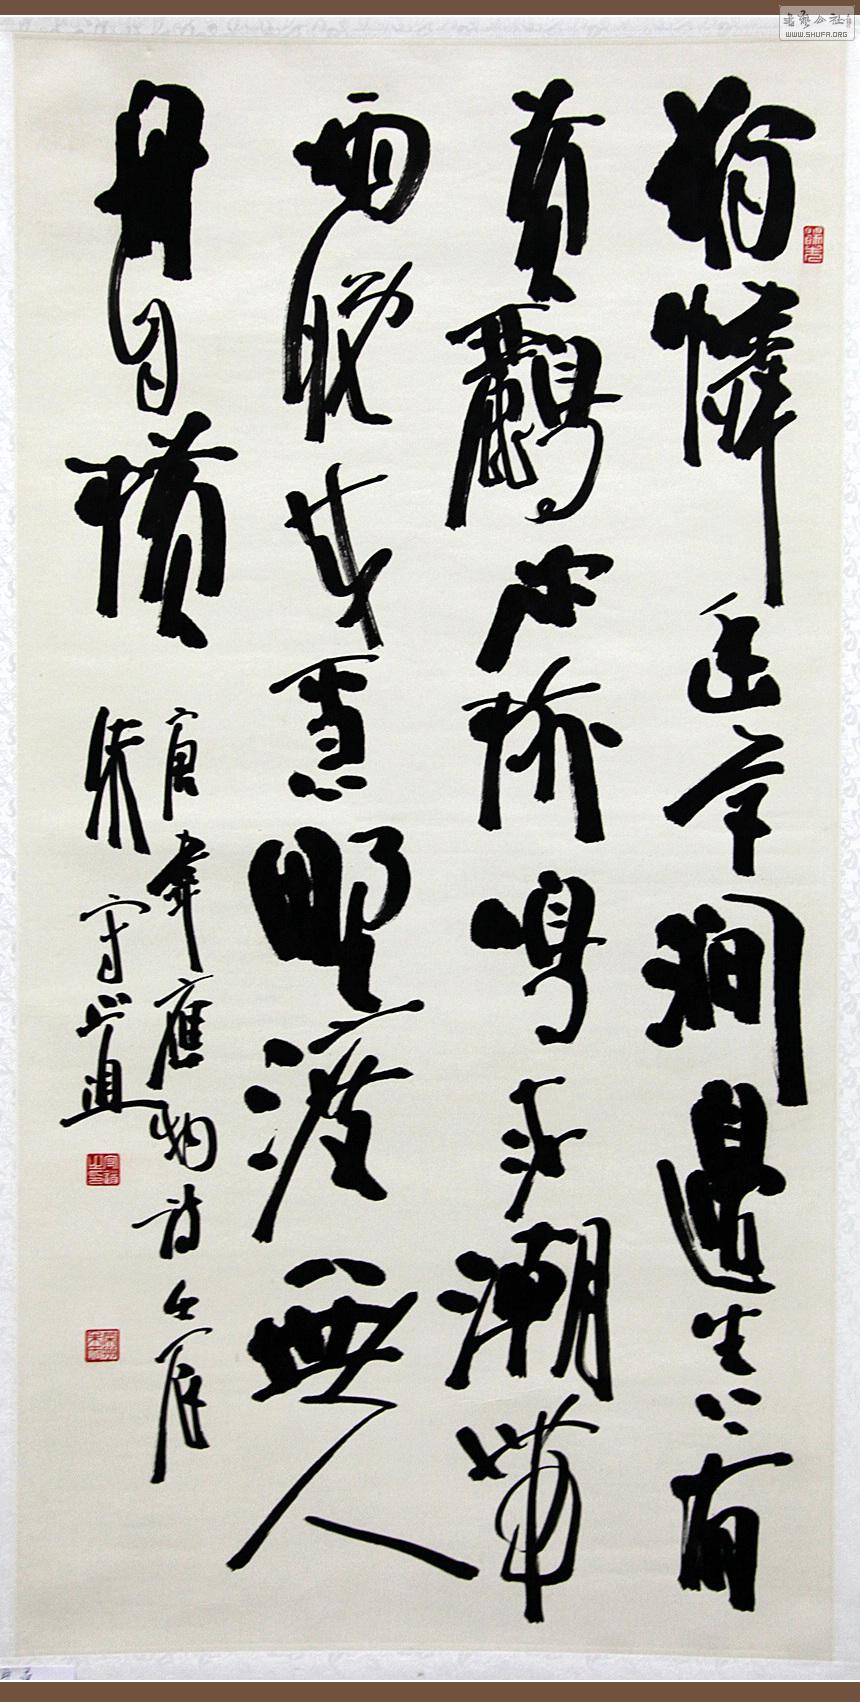 獨憐幽草澗邊生上有
黄鸝深樹鳴春潮帶
雨晚来急野渡無人
舟自横
唐韋應物詩壬辰
朱守道
书艺公社
WWW.SHUFA.ORG